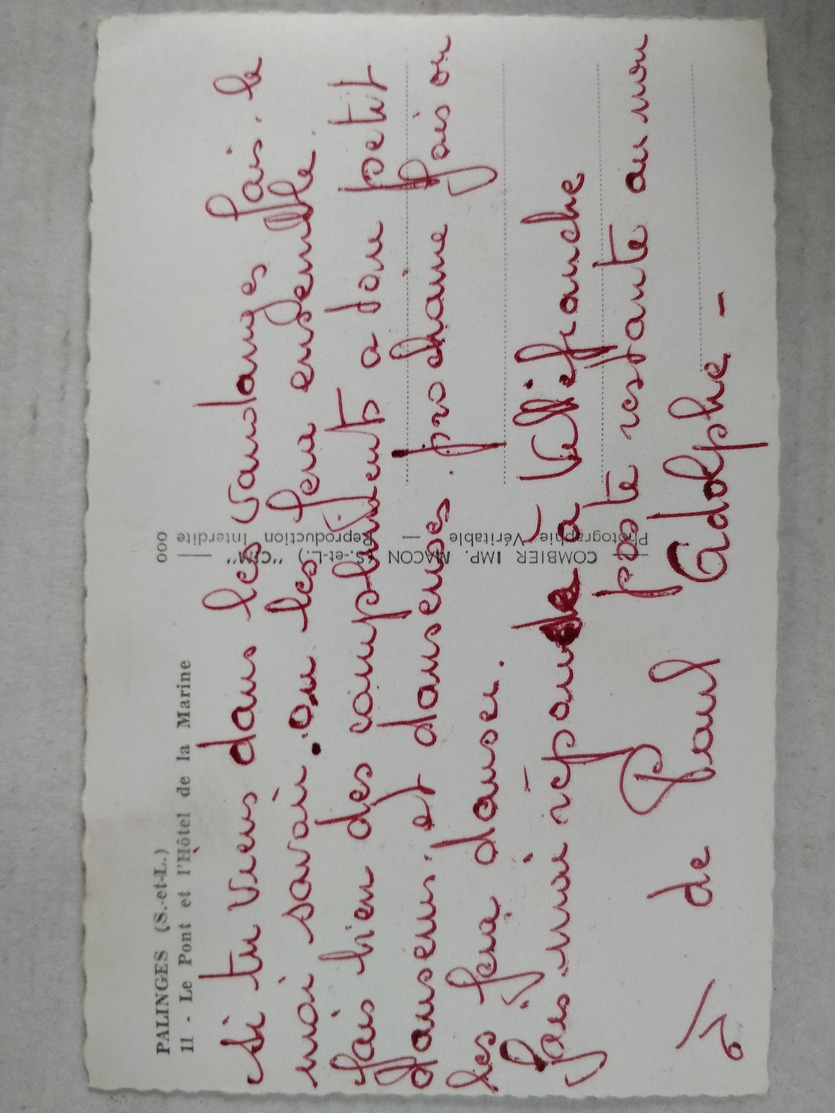 PALINGES (S.-et-L.)
11 - Le Pont et l'Hôtel de la Marine
si tu viens dans les vandanges fais. le
moi savoir. on les fera ensemble.
fais bien des compliments a tone petit
danseurs. et danseuses. prochaine fois on
les fera danser.
fais. moi réponde à Villefranche
poste restante au nom
de Paul Adolphe -
000
"CIM"
COMBIER IMP. MACON (S.-et-L.)
Photographie Véritable — Reproduction Interdite